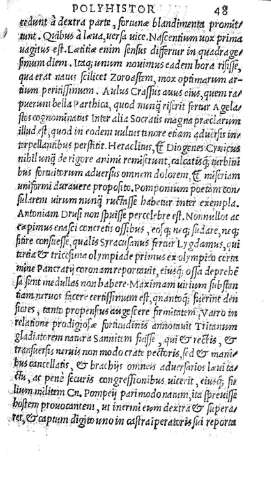 POLYHISTOR 48
cedunt à dextra parte, fortunæ blandimenta promit
tunt. Quibus à læua, versa vice. Nascentium vox prima
vagitus est. Lætitiæ enim sensus differtur in quadrage
simum diem. itaq; unum nouimus eadem hora risisse,
qua erat natus scilicet Zoroastem, mox optimarum ar
tium peritissimum. At Crassus auus eius, quem ra
puerunt bella Parthica, quod nunq; riserit
stus cognominatus Inter alia Socratis magna præclarum
illud est, quod in eodem uultus tenore etiam aduersis in
terpellantibus perstitit. Heraclitus, & Diogenes Cynicus
nihil unq; de rigore animi remiserunt, calcatisq; turbini
bus fortuitorum aduersus omnem dolorem, & misericordiam
uniformi durauere proposito. Pomponium poetam con
sularem uirum nunq; ructasse habetur inter exempla.
Antoniam Drusi non spuisse percelebre est. Nonnullos ac
cepimus enasci concretis ossibus, eosq; neq; sudare, neq;
sitire consuesse, qualis Syracusanus fertur Lygdamus, qui
tertia & tricesima olympiade primus ex olympico certa
mine Pancratij coronam reportauit, eiusq; ossa deprehē
sa sunt medullas non habere. Maximam uirium substan
tiam neruos facere certissimum est, quantoq; fuerint den
siores, tanto propensius augescere firmitatem. Varro in
relatione prodigiosæ fortitudinis annotauit Tritanum
gladiatorem natura Samnitem fuisse, qui & rectis, &
transuersis neruis non modo crate pectoris, sed & mani
bus cancellatis, & brachijs omnes aduersarios leui ta
ctu, ac penè securis congressionibus uicerit, eiusq; fi
lium militem Cn. Pompeij pari modo natum, ita spreuisse
hostem prouocantem, ut inermi eum dextra & supera
ret, & captum digito uno in castra imperatoris sui reporta